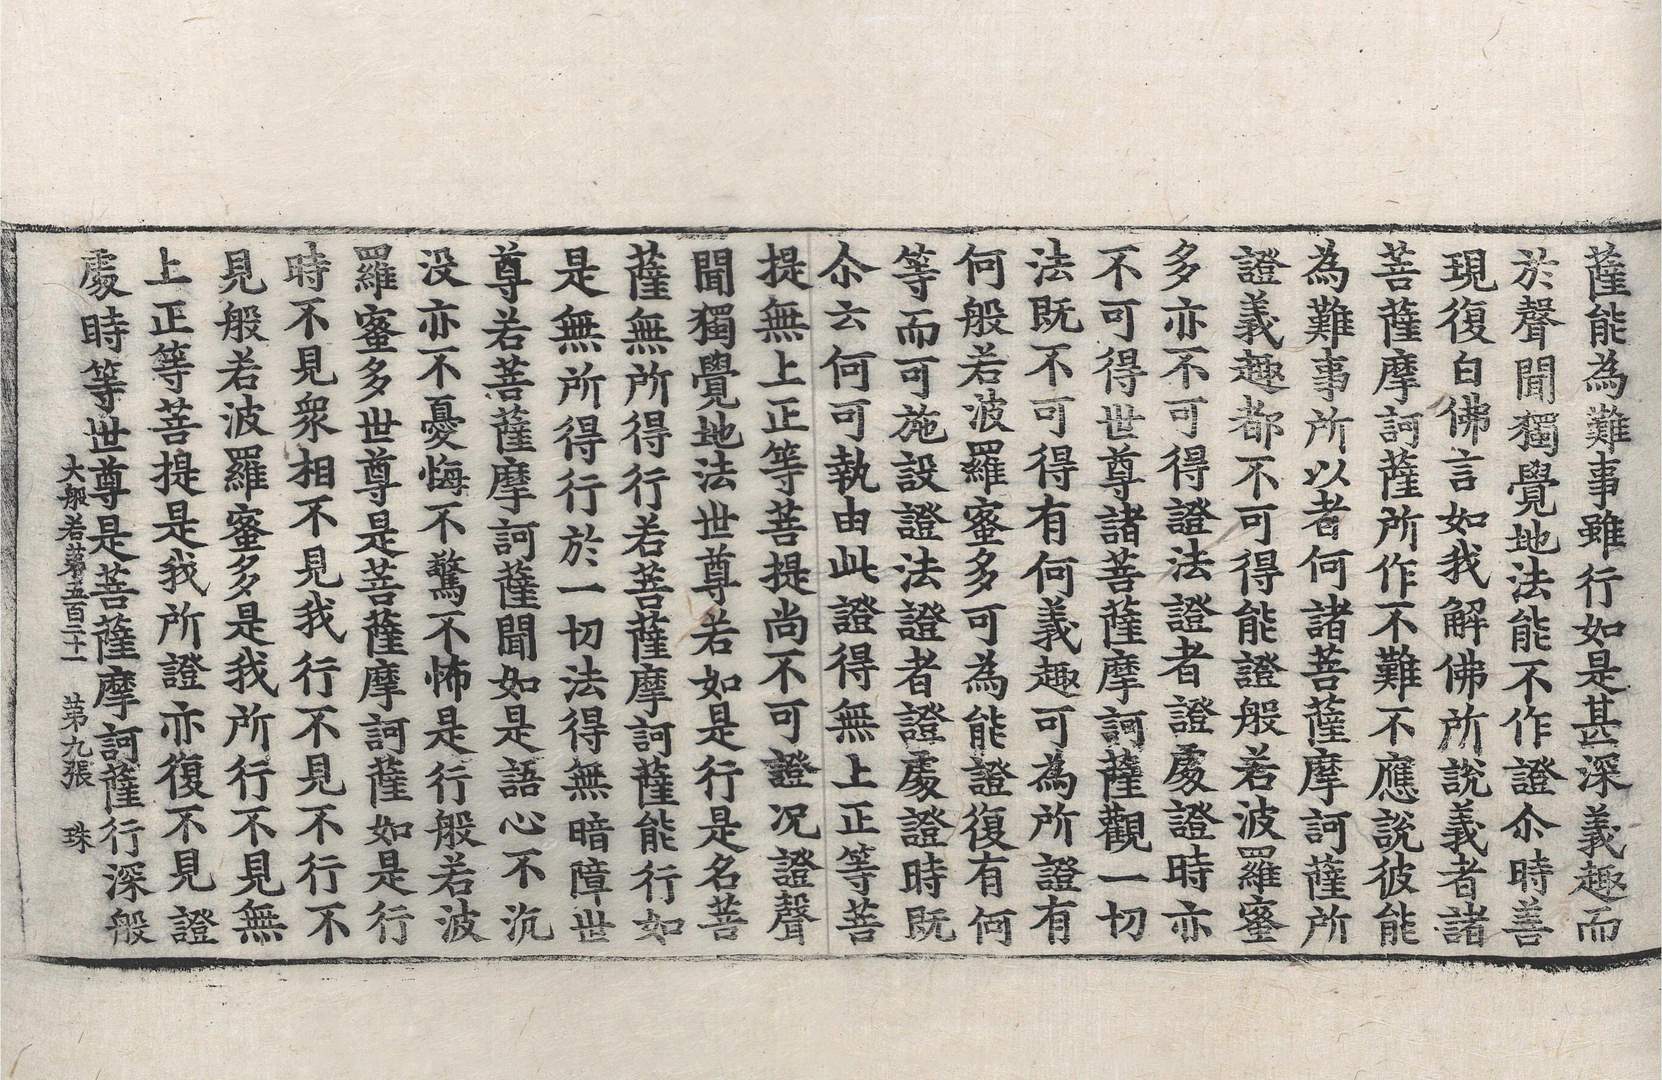 薩能為難事雖行如是甚深義趣而
於聲聞獨覺地法能不作證尒時善
現復白佛言如我解佛所說義者諸
菩薩摩訶薩所作不難不應說彼能
為難事所以者何諸菩薩摩訶薩所
證義趣都不可得能證般若波羅蜜
多亦不可得證法證者證處證時亦
不可得世尊諸菩薩摩訶薩觀一切
法既不可得有何義趣可為所證有
何般若波羅蜜多可為能證復有何
等而可施設證法證者證處證時既
尒云何可執由此證得無上正等菩
提無上正等菩提尚不可證况證聲
聞獨覺地法世尊若如是行是名菩
薩無所得行若菩薩摩訶薩能行如
是無所得行於一切法得無暗障世
尊若菩薩摩訶薩聞如是語心不沉
没亦不憂悔不驚不怖是行般若波
羅蜜多世尊是菩薩摩訶薩如是行
時不見衆相不見我行不見不行不
見般若波羅蜜多是我所行不見無
上正等菩提是我所證亦復不見證
處時等世尊是菩薩摩訶薩行深般
大般若第五百二十一 第九張 珠